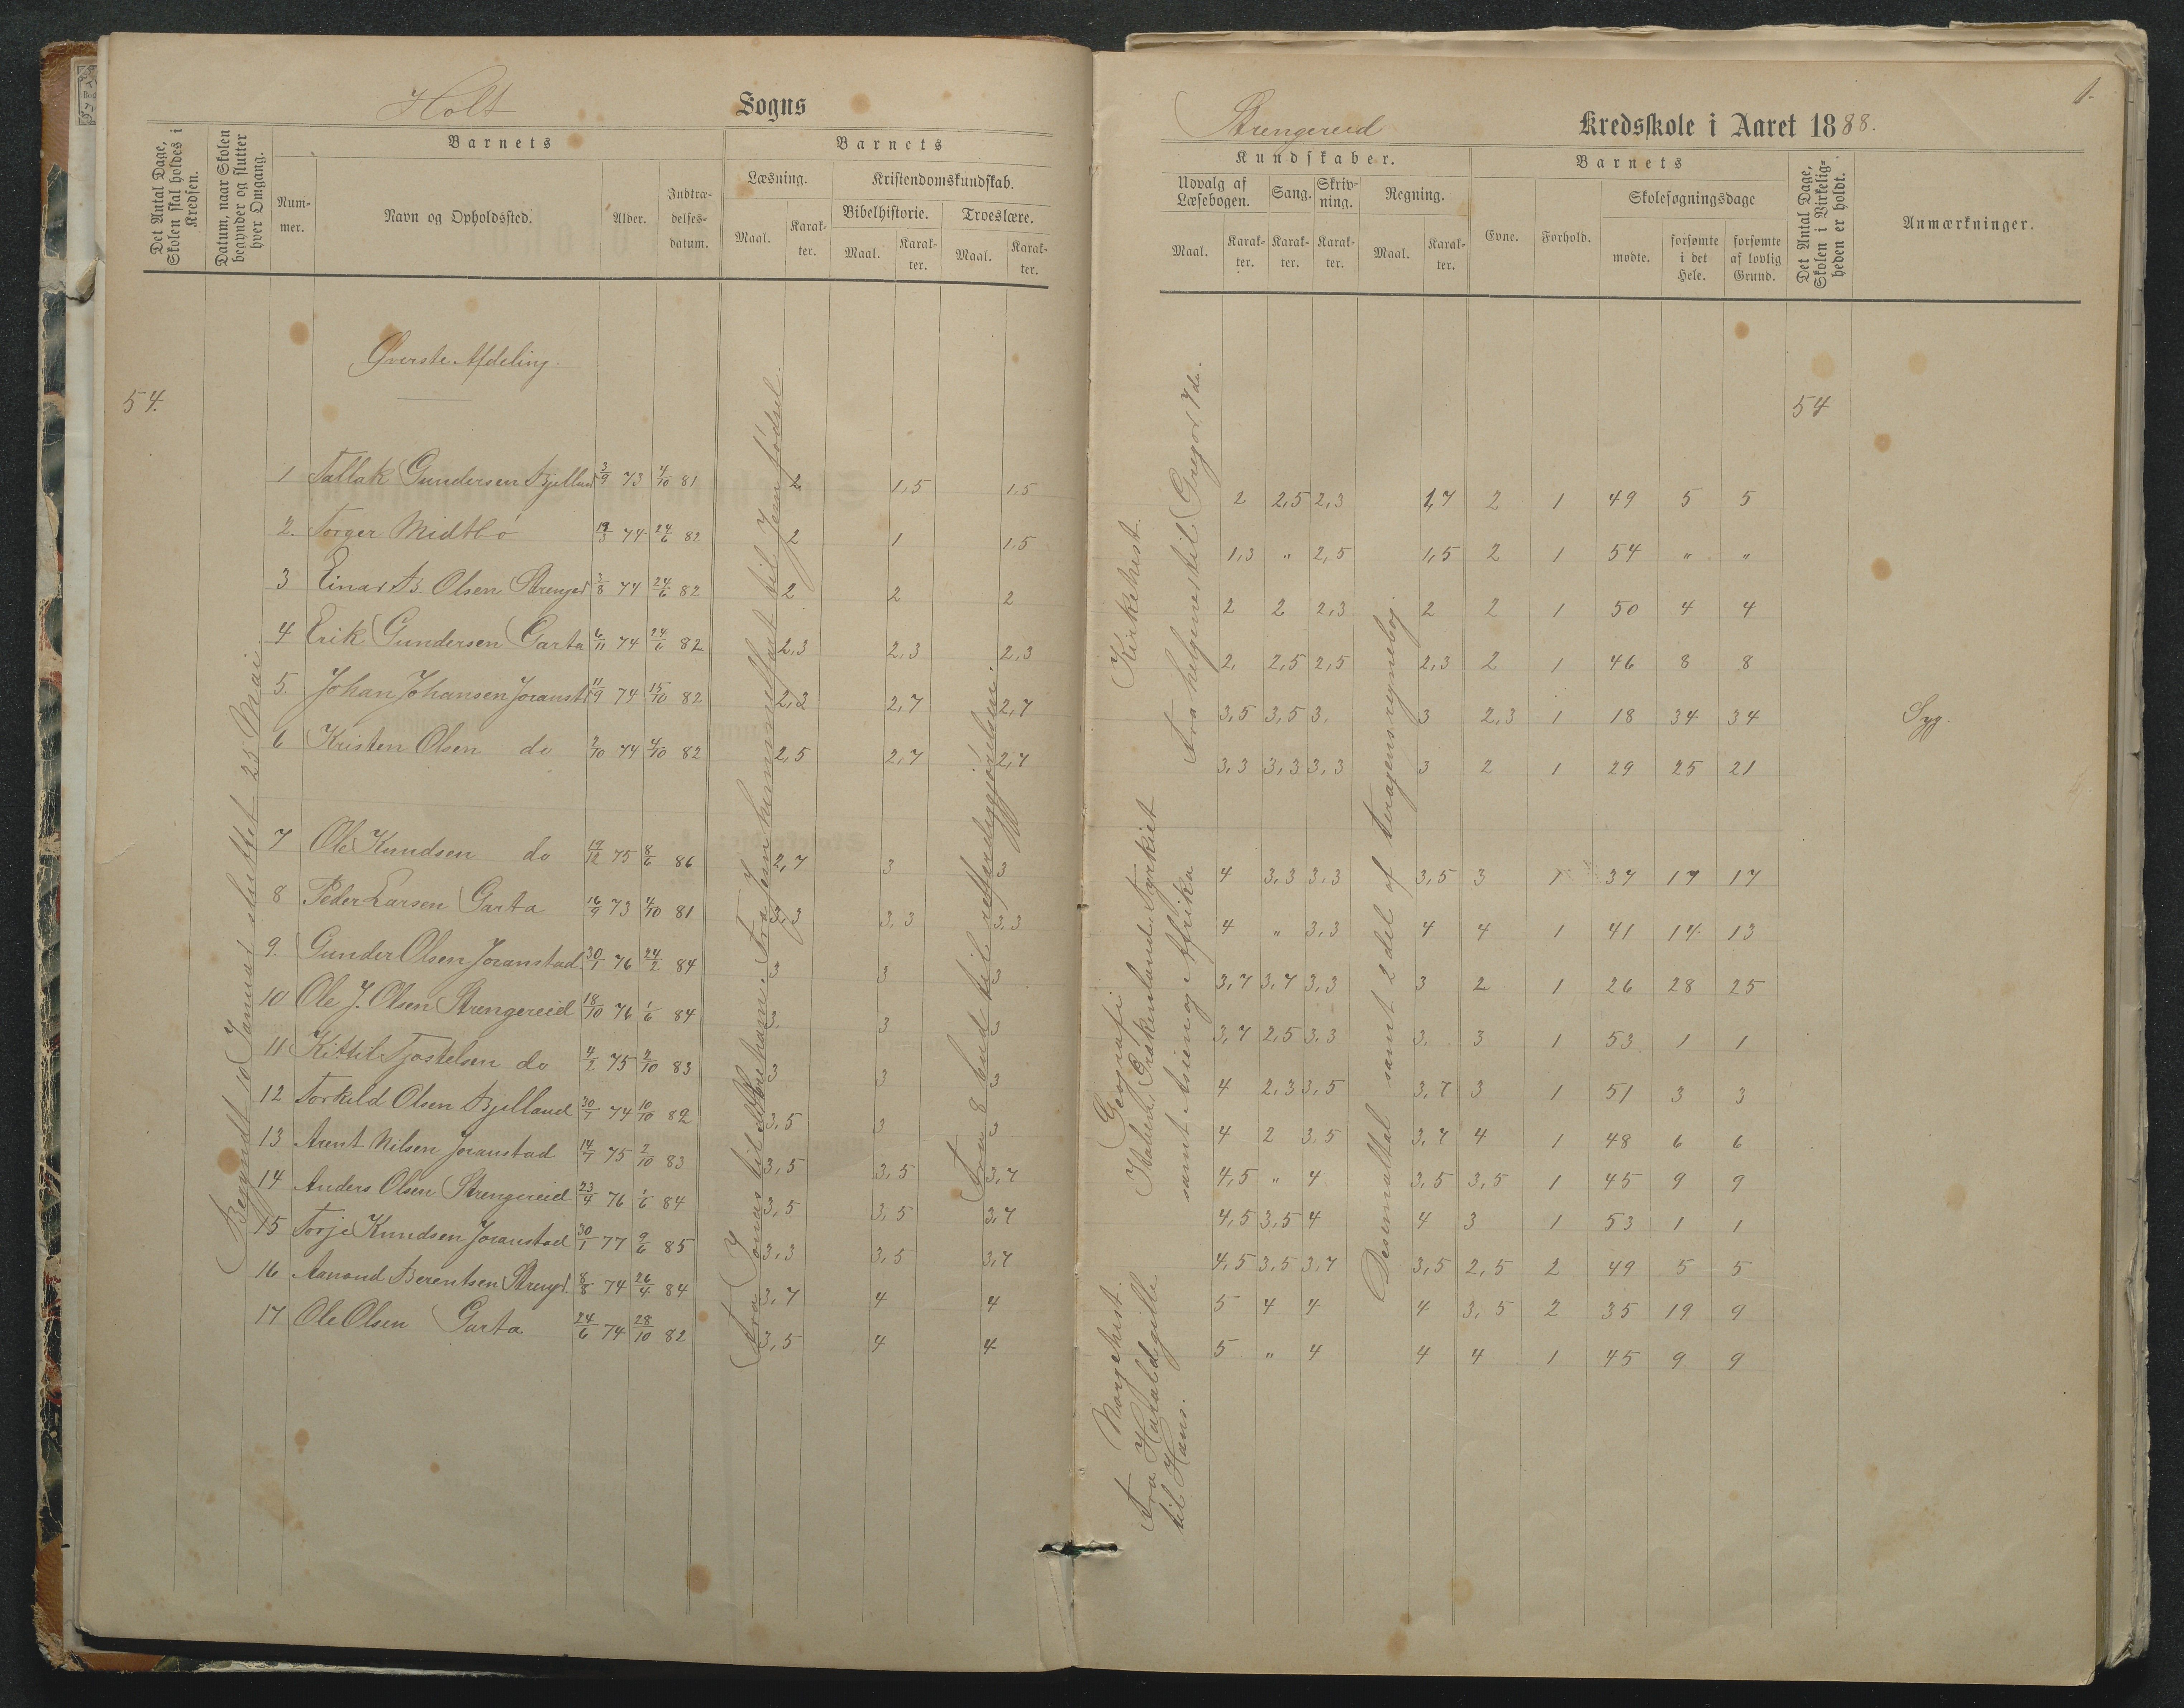 Holt Sogns
Det Antal Dage, Skolen skal holdes i Kredsen.
Datum, naar Skolen begynder og slutter hver Omgang.
Barnets
Nummer.
Navn og Opholdssted.
Alder.
Indtrædelsesdatum.
Barnets
Læsning.
Kristendomskundskab.
Bibelhistorie.
Troeslære.
Maal. Karakter. Maal. Karakter. Maal. Karakter.
Øverste Afdeling.
54.
1 Tallak Gundersen Bjelland 3/9 73 4/10 81 2 1,5 1,5
2. Torger Midtbø 19/3 74 24/6 82 2 1 1,5
3 Einar B. Olsen Strengerd 3/8 74 24/6 82 2 2 2
4 Erik Gundersen Garta 6/11 74 24/6 82 2,3 2,3 2,3
5. Johan Johansen Joranst. 11/9 74 15/10 82 2,3 2,7 2,7
6 Kristen Olsen do 2/10 74 4/10 82 2,5 2,7 2,7
7 Ole Knudsen do 19/12 75 8/6 86 2,7 3 3
8 Peder Larsen Garta 16/9 73 4/10 81 3,3 3,3 3,3
9. Gunder Olsen Joranstad 30/1 76 24/2 84 3 3 3
10 Ole J. Olsen Strengereid 18/10 76 1/6 84 3. 3 3
11 Kittil Tjostelsen do 4/2 75 2/10 83 3 3 3
12 Torkild Olsen Bjelland 30/7 74 10/10 82 3,5 3 3
13 Arent Nilsen Joranstad 14/7 75 2/10 83 3,5 3,5 3,7
14 Anders Olsen Strengereid 23/4 76 1/6 84 3,5 3,5 3,7
15 Torje Knudsen Joranstad 30/1 77 9/6 85 3,3 3,5 3,7
16 Aanond Berentsen Strengr. 8/8 74 26/4 84 3,7 4 4
17 Ole Olsen Garta 24/6 74 28/10 82 3,5 4 4
Begyndt 10 Januar sluttet 25 Mai
Fra Jonas til Abraham. Fra Jenhimmelfart til Jenfødsel.
Fra 8 bud til retfærdiggjørelsen.
1.
Strengereid Kredsskole i Aaret 1888.
Kundskaber.
Udvalg af Læsebogen.
Sang.
Skrivning.
Regning.
Maal. Karakter. Karakter. Karakter. Maal. Karakter.
Barnets
Evne.
Forhold.
Skolesøgningsdage
mødte.
forsømte i det Hele.
forsømte af lovlig Grund.
Det Antal Dage, Skolen i Virkeligheden er holdt.
Anmærkninger.
54
2 2,5 2,3 1,7 2 1 49 5 5
1,3 " 2,5 1,5 2 1 54 " "
2 2 2,3 2 2 1 50 4 4
2, 2,5 2,5 2,3 2 1 46 8 8
3,5 3,5 3. 3 2,3 1 18 34 34 Syg.
3,3 3,3 3,3 3 2 1 29 25 21
4 3,3 3,3 3,5 3 1 37 17 17
4 " 3,3 4 4 1 41 14 13
3,7 3,7 3,3 3 2 1 26 28 25
3,7 2,5 3,3 3. 3 1 53 1 1
4 2,3 3,5 3,7 3 1 51 3 3
4 2 3,5 3,7 4 1 48 6 6
4,5 " 4 3,5 3,5 1 45 9 9
4,5 3,5 4 4 3 1 53 1 1
4,5 3,5 3,7 3,5 2,5 2 49 5 5
5 4 4 4 3,5 2 35 19 9
5 " 4 4 4 1 45 9 9
Kirkehist.
Fra helgenes til Gregor 7de.
Geografi
Italien, Grækenland, Tyrkiet
samt Asien og Afrika
Norgehist.
Fra Harald gille
til Hans.
Desemaltal samt 2 del af Aragens regnebog.